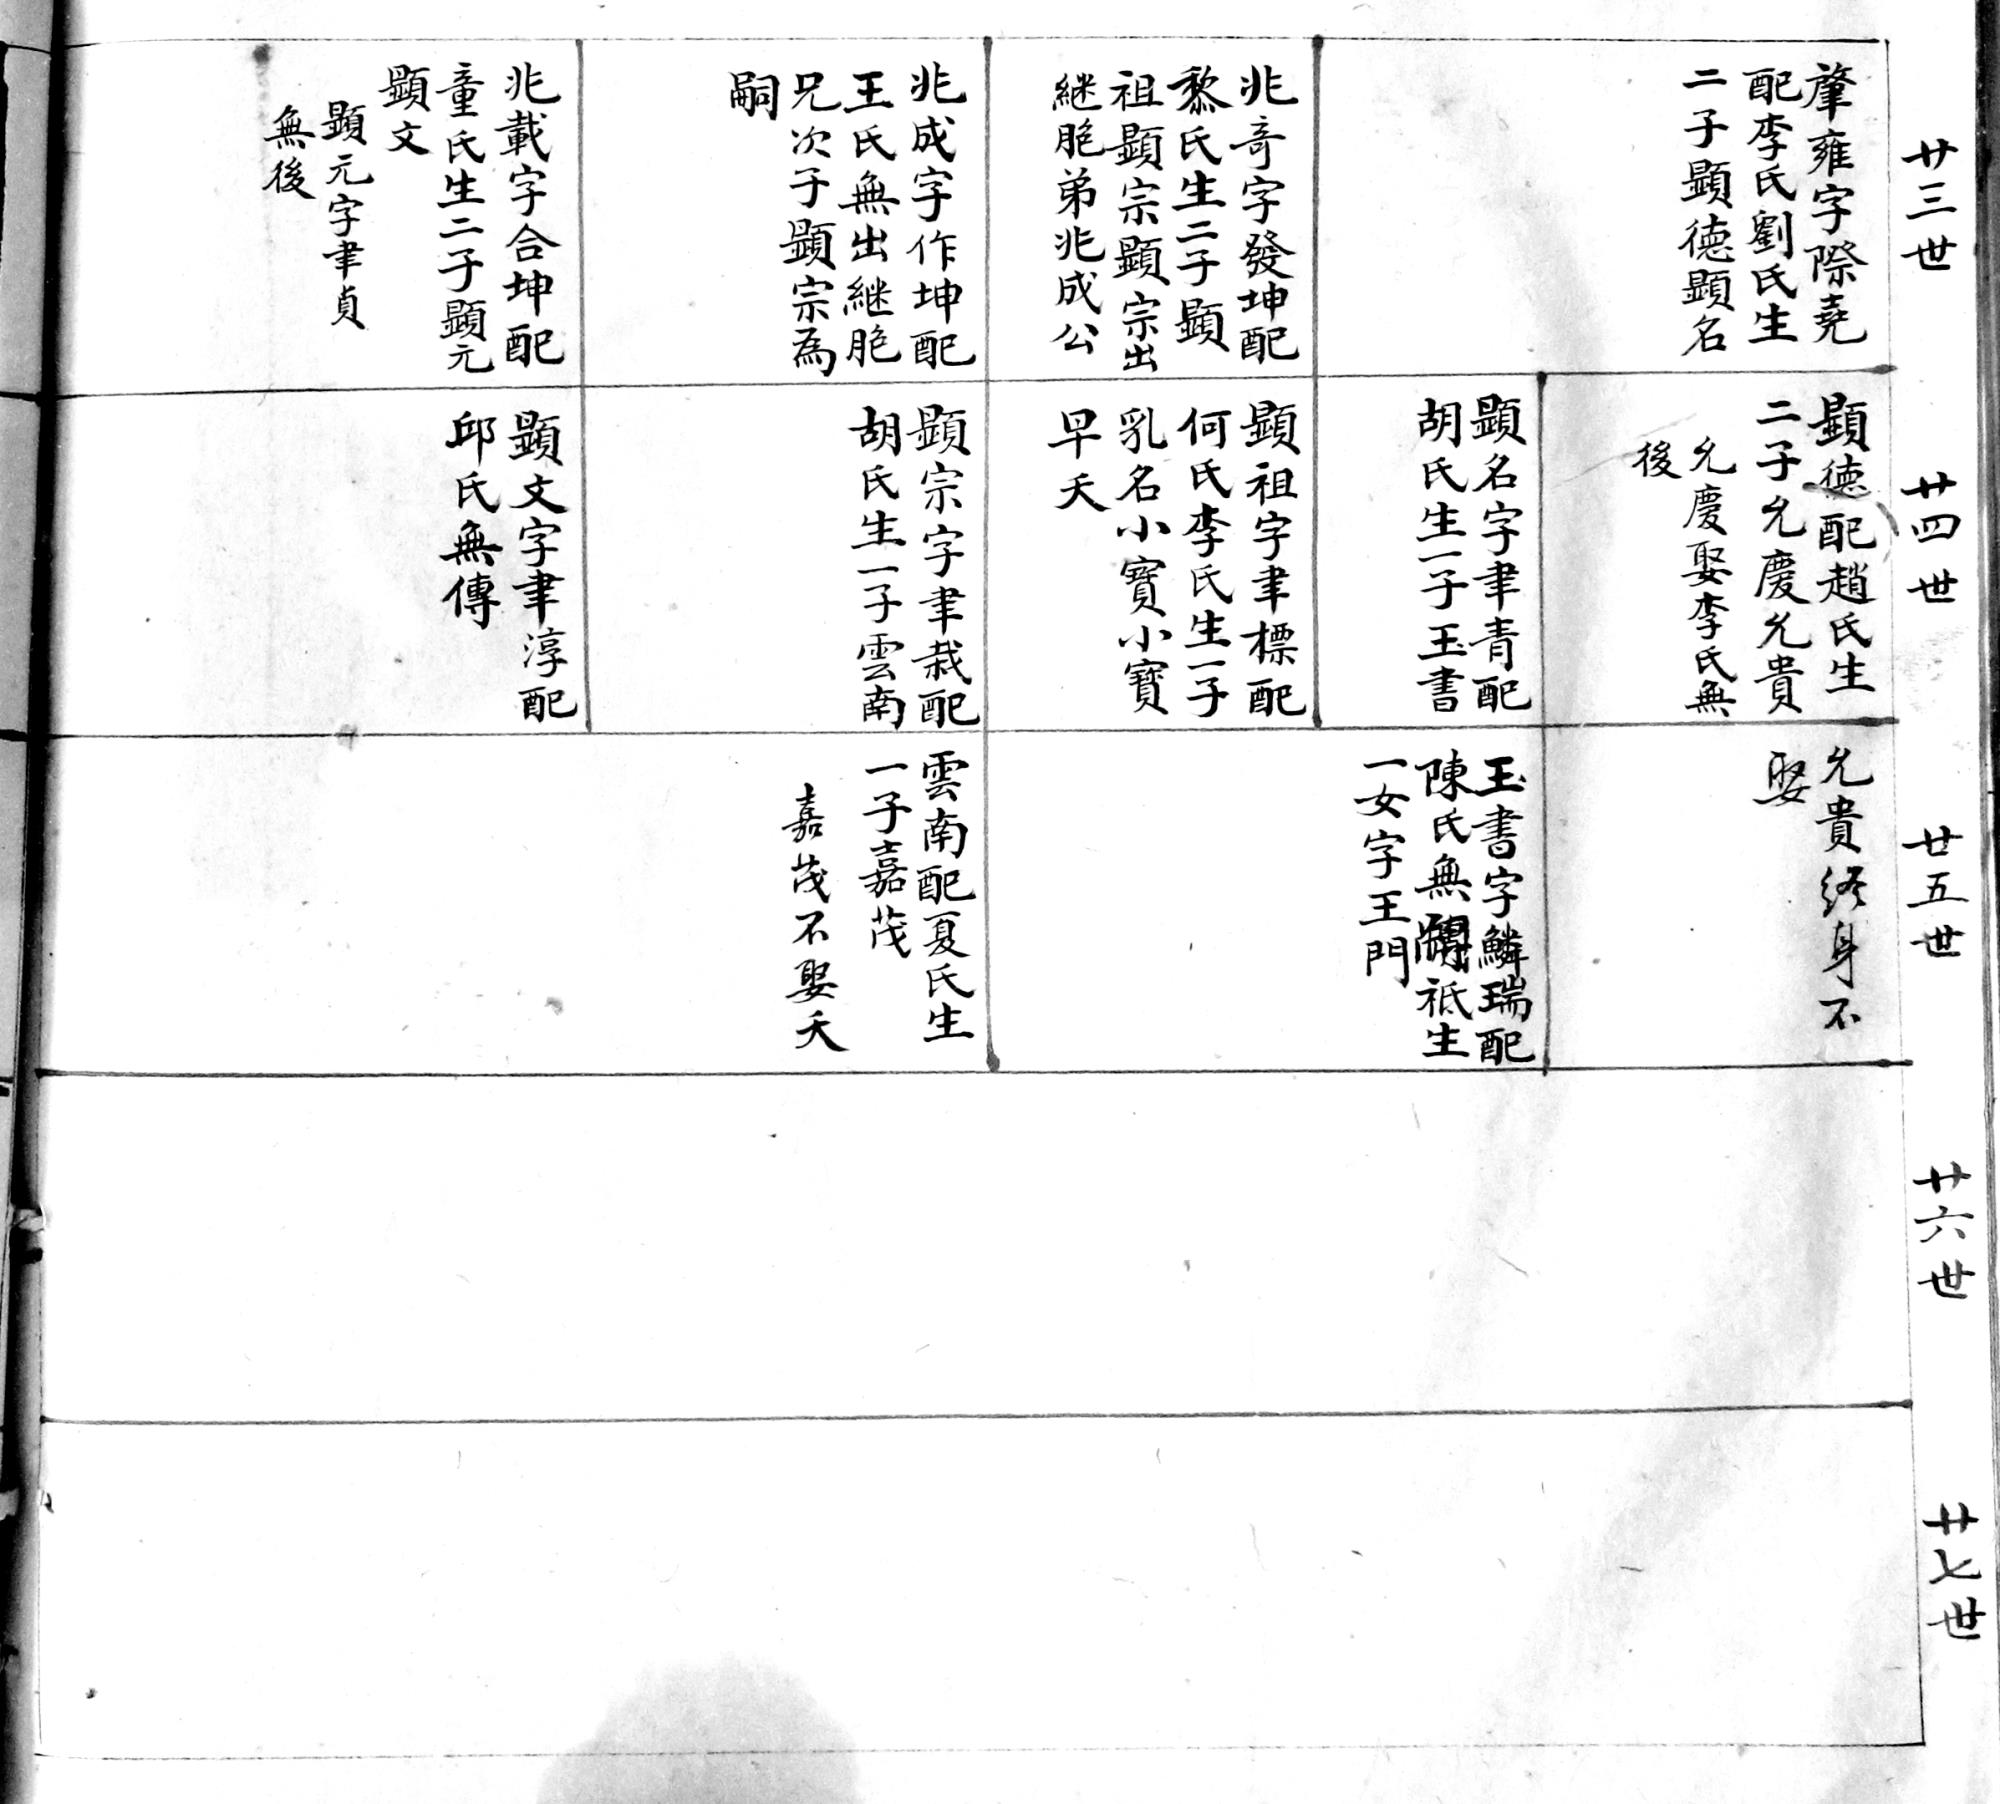 廿三世
肇雍字際堯
配李氏劉氏生
二子顯德顯名
兆奇字發坤配
黎氏生二子顯
祖顯宗顯宗出
継胞弟兆成公
兆成字作坤配
王氏無出継胞
兄次子顯宗為
嗣
兆載字合坤配
童氏生二子顯元
顯文
顯元字聿貞
無後
廿四世
顯德配趙氏生
二子允慶允貴
允慶娶李氏無
後
顯名字聿青配
胡氏生一子玉書
顯祖字聿標配
何氏李氏生一子
乳名小寶小寶
早夭
顯宗字聿栽配
胡氏生一子雲南
顯文字聿淳配
邱氏無傳
廿五世
允貴終身不
娶
玉書字鱗瑞配
陳氏無祗生
一女字王門
雲南配夏氏生
一子嘉茂
嘉茂不娶夭
廿六世
廿七世